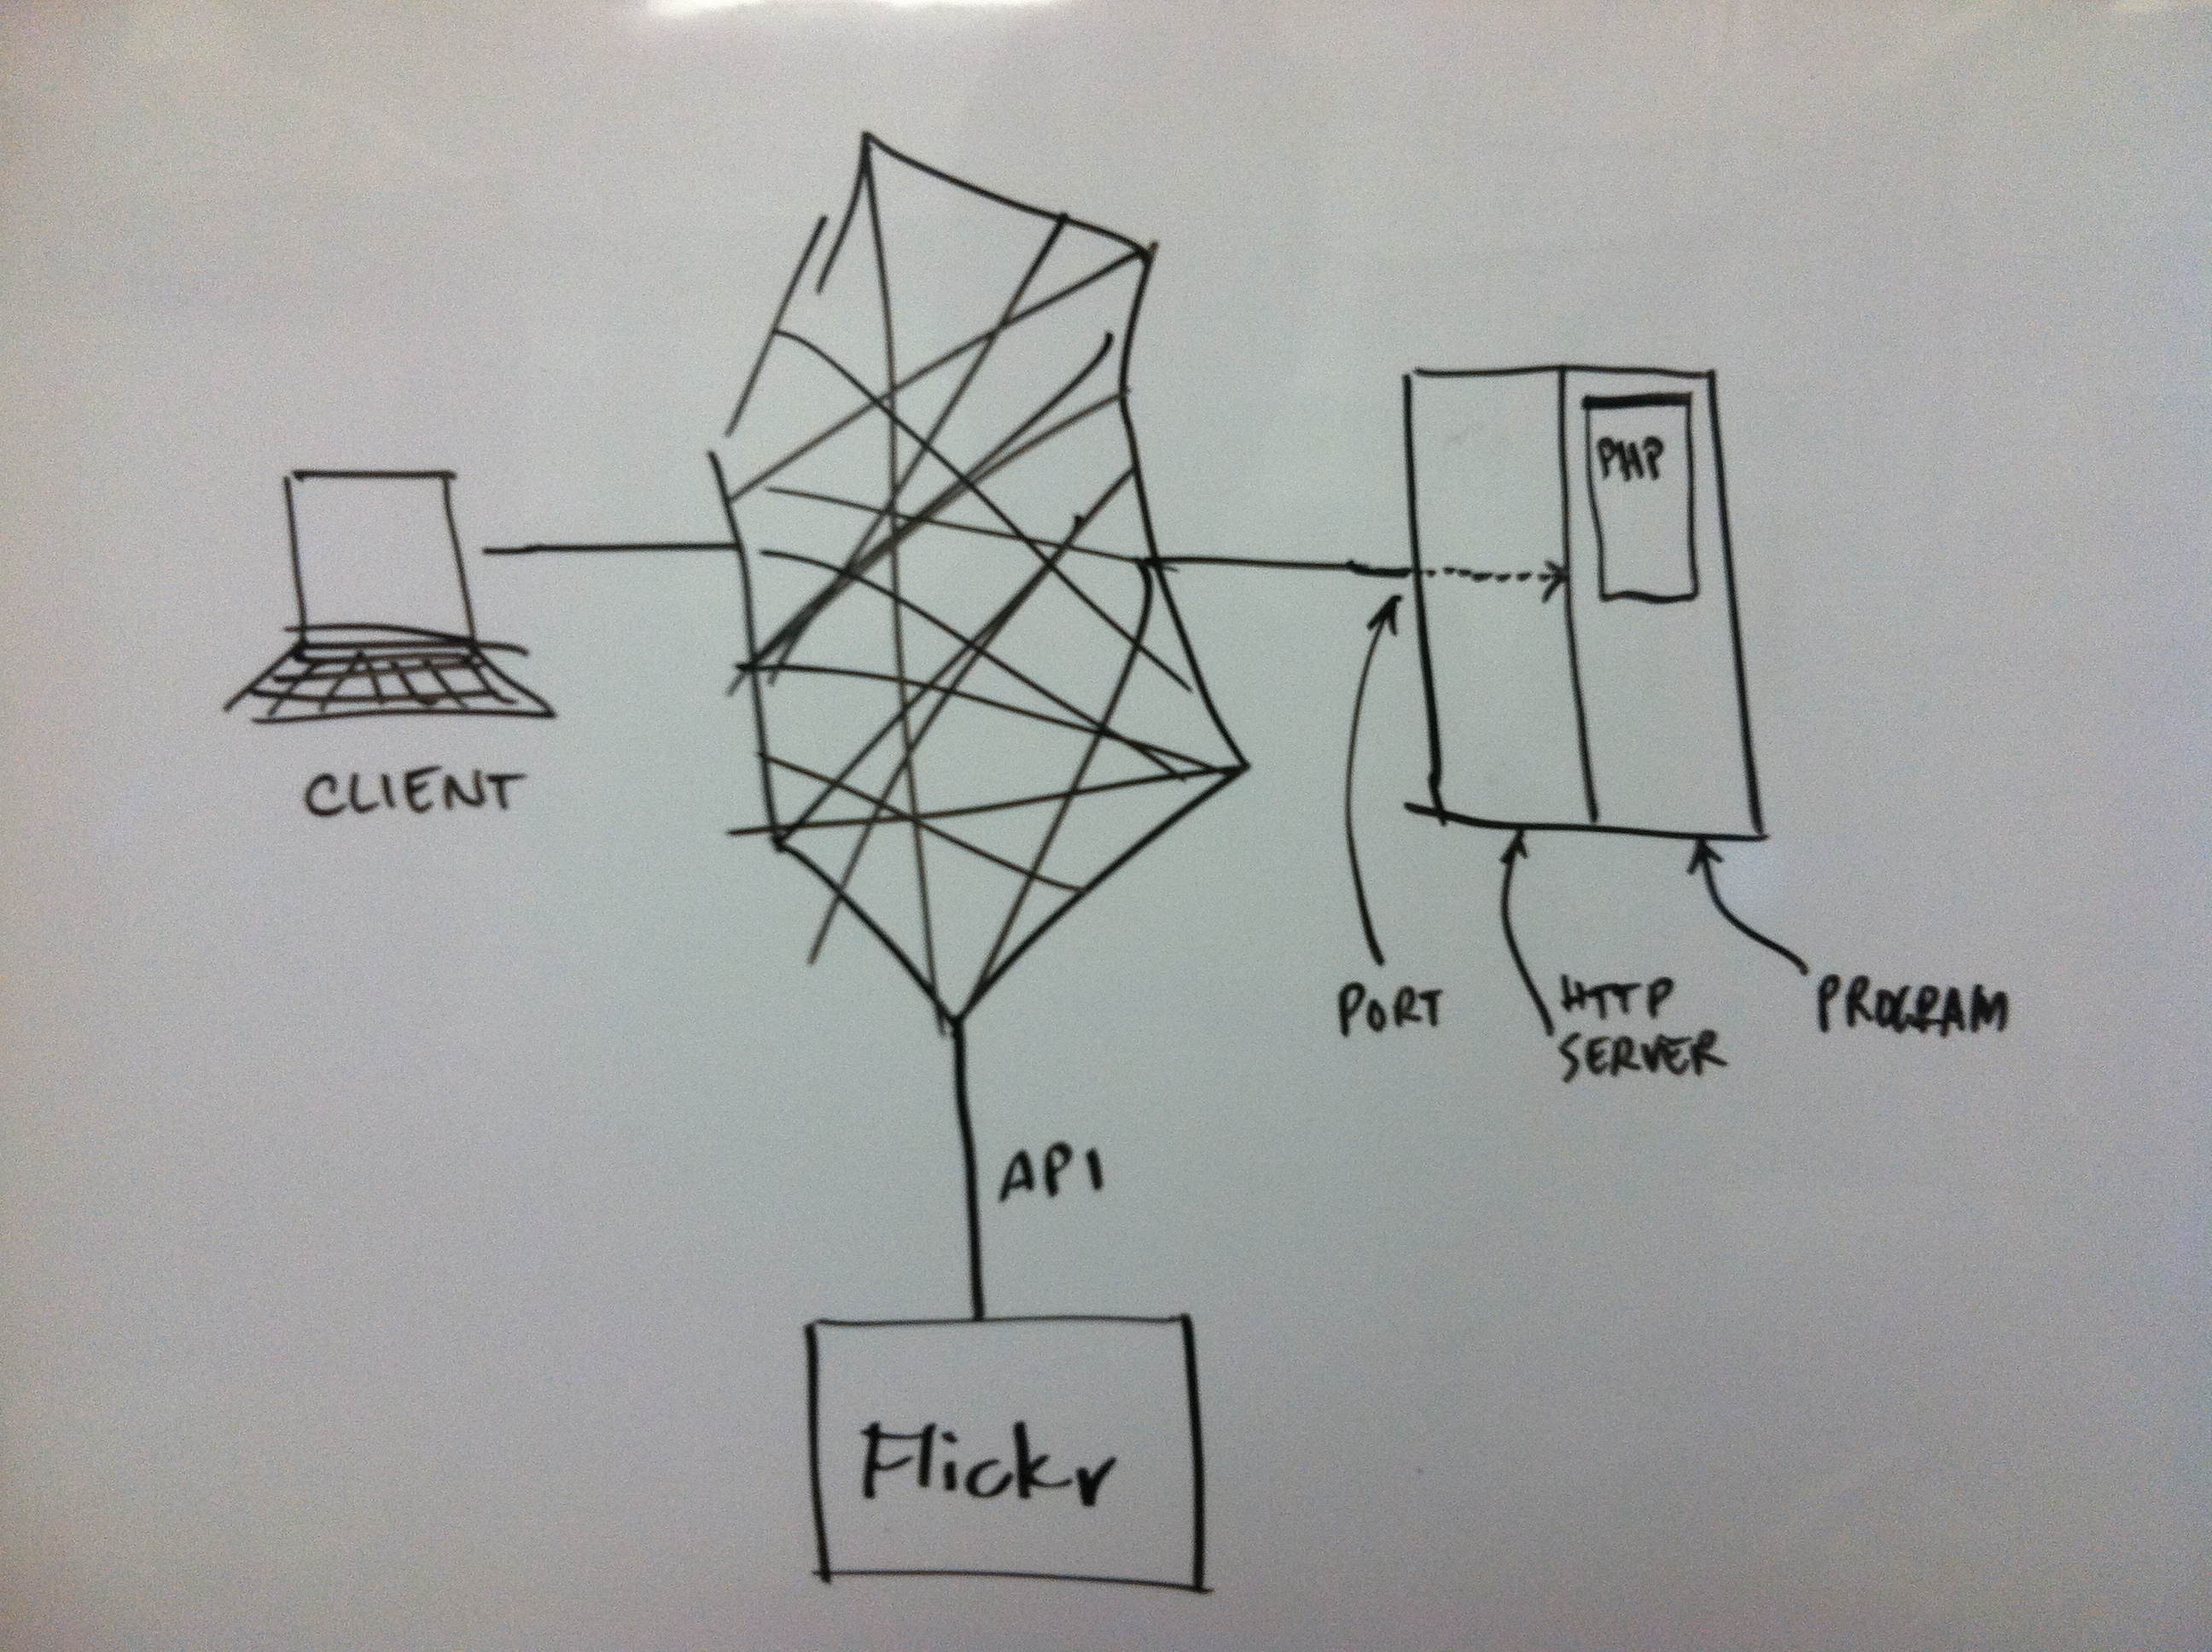 PHP
CLIENT
PORT
HTTP
SERVER
PROGRAM
API
Flickr